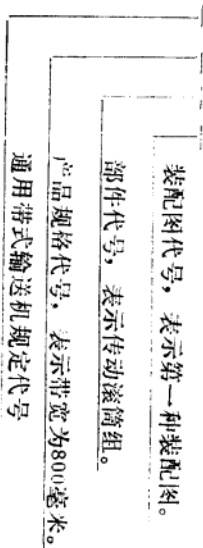 装配图代号，表示第一种装配图。
部件代号，表示传动滚筒组。
产品规格代号，表示带宽为800毫米。
通用带式输送机规定代号